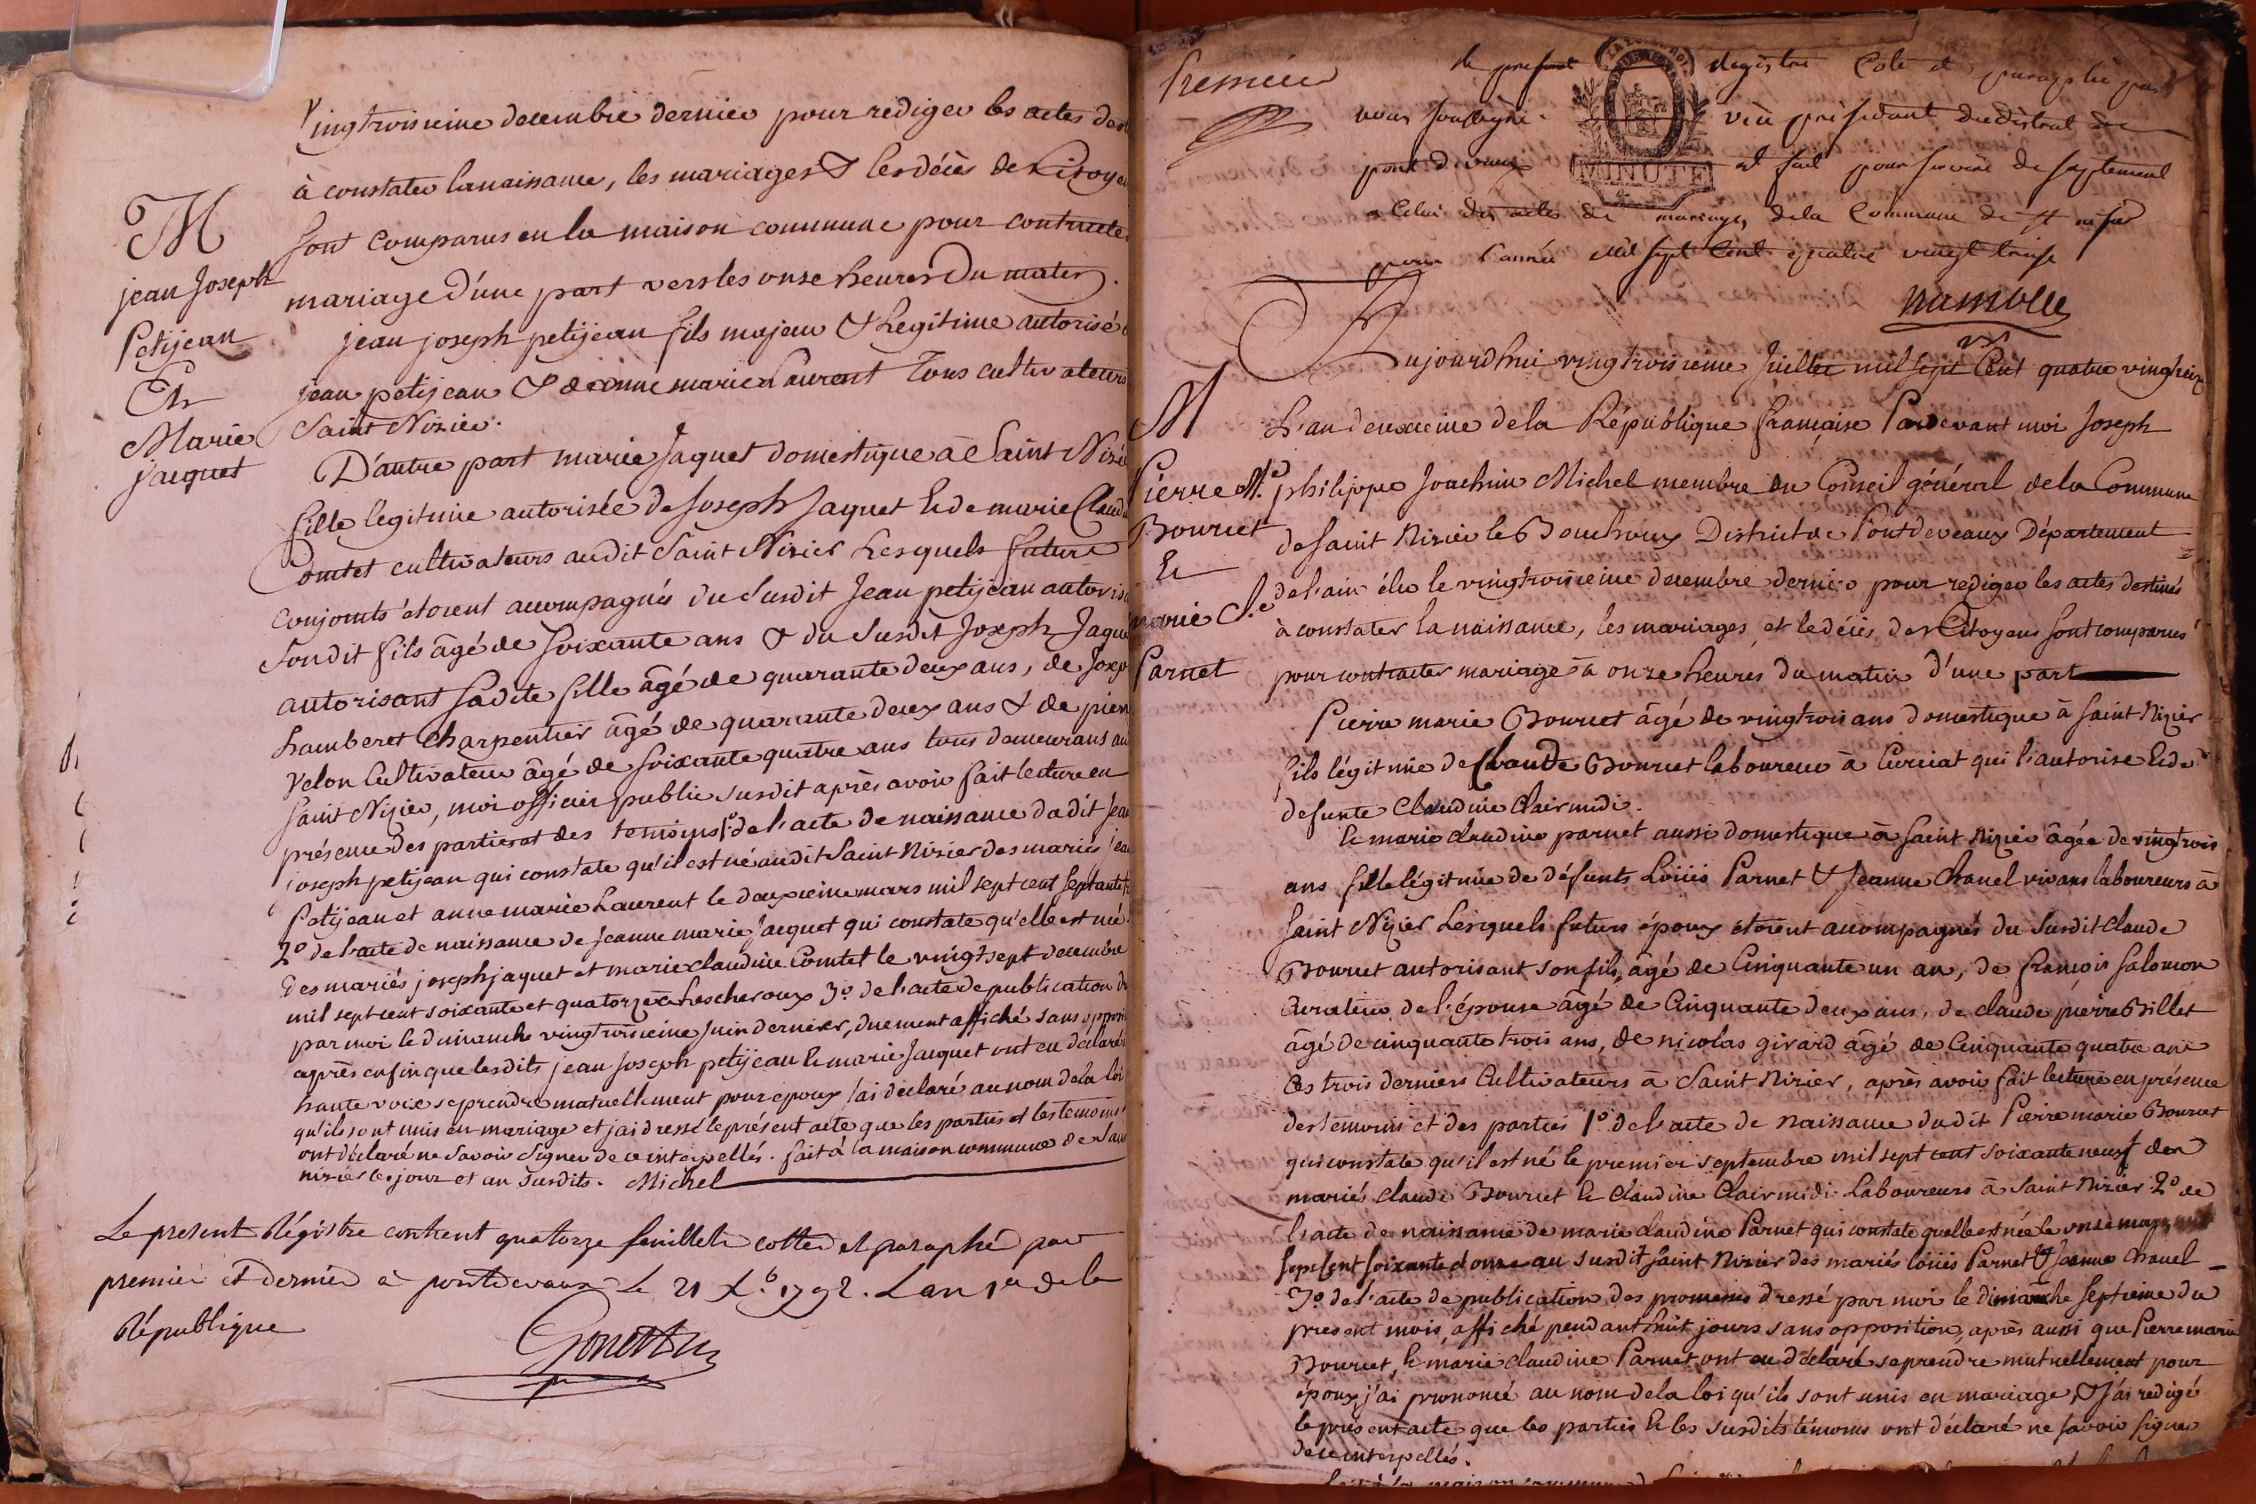 Vingtroisieme decembre dernier pour rediger les actes des
à constater la naissance, les mariages & les décès de Citoyen
sont comparus en la maison commune pour contracter
mariage d'une part vers les onze heures du matin.
M
jean Joseph
Petijean
Et
Marie
jacquet
jean joseph petijean fils majeur & Legitime autorisé
jean petijean & de anne marie Laurent Tous cultivateurs
Saint Nizier.
D'autre part marie Jaquet domestique à Saint Nizie
fille legitime autorisée de Joseph Jaquet & de marie Claud
Comtet cultivateurs audit Saint Nizier Lesquels futurs
conjoints étoient accompagnés du Susdit Jean petijean autoris
Son dit fils âgé de soixante ans & du Susdit Joseph Jaque
autorisant sadite fille âgé de quarante deux ans, de Josep
hamberet Charpentier âgé de quarante deux ans & de pierr
Velon Cultivateur âgé de soixante quatre ans tous demeurans au
Saint Nizier, moi officier public susdit après avoir fait lecture en
présence des parties et des temoins 1º de l'acte de naissance dudit Jean
joseph petijean qui constate qu'il est né audit Saint Nizier des mariés jean
Petijean et anne marie Laurent le deuxieme mars mil sept cent septante
2º de l'acte de naissance de Jeanne marie Jacquet qui constate qu'elle est née
des mariés joseph jaquet et marie claudine Comtet le vingt sept decembre
mil sept cent soixante et quatorze à Lescheroux 3º de l'acte de publication
par moi le dimanche vingtroisieme Juin dernier, duement affiché sans opposi
après enfin que lesdits jean Joseph petijean & marie Jacquet ont eu déclaré
haute voix se prendre mutuellement pour epoux j'ai déclaré au nom de la loi
qu'ils sont unis en mariage et j'ai dressé le présent acte que les parties et les temoins
ont déclaré ne savoir signer de ce interpellés. fait à la maison commune de Sain
nizier les jour et an susdits. Michel
Le present Régistre contient quatorze feuillets cottés et paraphé par
premier et dernier à pontdevaux Le 21 Xb 1792. L'an 1er de la
République
Premier
le present Registre Coté et paraphé par
nous soussigné vice président du district de
pont de vaux et fait pour servir de supplement
MINUTE
a Celui des actes de mariages de la Commune de St nizier
pour l'année mil sept Cent quatre vingt treize
Aujourd'hui vingtroisieme Juillet mil sept Cent quatre vingtreize
L'an deuxieme de la République française Pardevant moi Joseph
philippe Joachim Michel membre du Conseil général de la Commune
de Saint Nizier le Bouchoux District de Pontdeveaux Département
de l'ain élu le vingtroisieme decembre dernier pour rediger les actes destinés
à constater la naissance, les mariages et le décès des Citoyens sont comparus
pour contracter mariage à onze heures du matin d'une part
M
Pierre Me
Bourcet
Et
marie Cl.e
Parnet
Pierre marie Bourcet âgé de vingtrois ans domestique à Saint Nizier
fils légitime de Claude Bourcet laboureur à Curciat qui l'autorise & de
defunte Claudine Clairmidi.
Et marie claudine parnet aussi domestique à Saint Nizier âgée de vingtrois
ans fille légitime de défunts Loüis Parnet & Jeanne Chanel vivans laboureurs à
Saint Nizier Lesquels futurs époux étoient accompagnés du Susdit Claude
Bourcet autorisant son fils, âgé de Cinquante un an, de françois Salomon
Curateur de l'épouse âgé de Cinquante deux ans, de claude pierre Billet
âgé de cinquante trois ans, de nicolas girard âgé de Cinquante quatre ans
Ces trois derniers Cultivateurs à Saint Nizier, après avoir fait lecture en présence
des temoins et des parties 1º de l'acte de Naissance dudit Pierre marie Bourcet
qui constate qu'il est né le premier septembre mil sept cent soixante neuf des
mariés claude Bourcet & Claudine Clairmidi Laboureurs à Saint Nizier 2º de
l'acte de naissance de marie claudine Parnet qui constate quelle est née le onze mars
sept Cent soixante donze au susdit Saint Nizier des mariés loüis Parnet & Jeanne Chanel
3º de l'acte de publication des promesses dressé par moi le dimanche septieme du
present mois, affiché pendant huit jours sans opposition, après aussi que Pierre marie
Bourcet, & marie claudine Parnet ont eu déclaré se prendre mutuellement pour
époux j'ai prononcé au nom de la loi qu'ils sont unis en mariage, & j'ai redigé
le présent acte que les parties & les susdits témoins ont déclaré ne savoir signer
de ce interpellés.